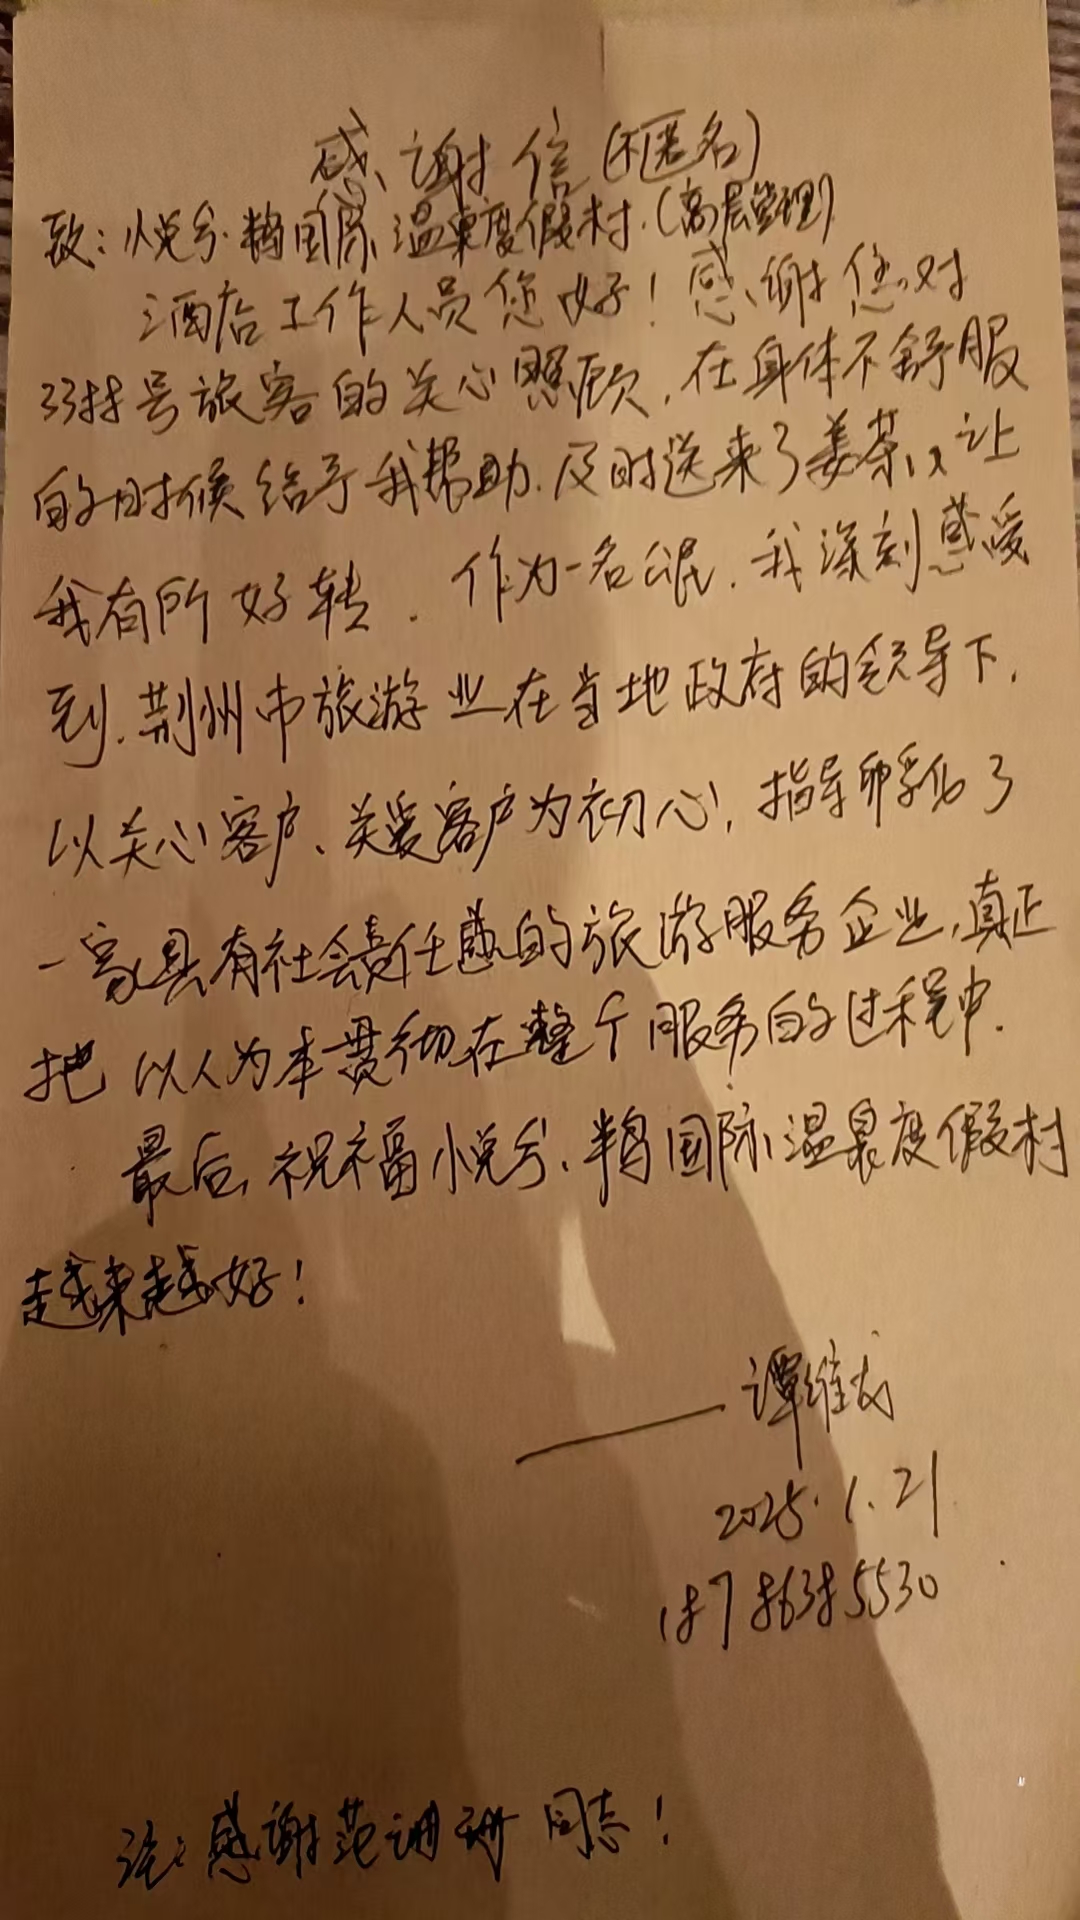 感谢信(不匿名)
致:悦兮·半岛国际温泉度假村.(高层管理)
酒店工作人员您好!感谢您对
3388号旅客的关心照顾,在身体不舒服
的时候给予我帮助.及时送来了姜茶,让
我有所好转.作为一名,我深刻感受
到.荆州市旅游业在当地政府的领导下.
以关心客户、关爱客户为初心!指导了
一家具有社会责任感的旅游服务企业,真正
把以人为本贯彻在整个服务的过程中.
最后,祝福悦兮·半岛国际温泉度假村
越来越好!
——谭维
2025.1.21
18786385530
注:感谢范珊珊同志!